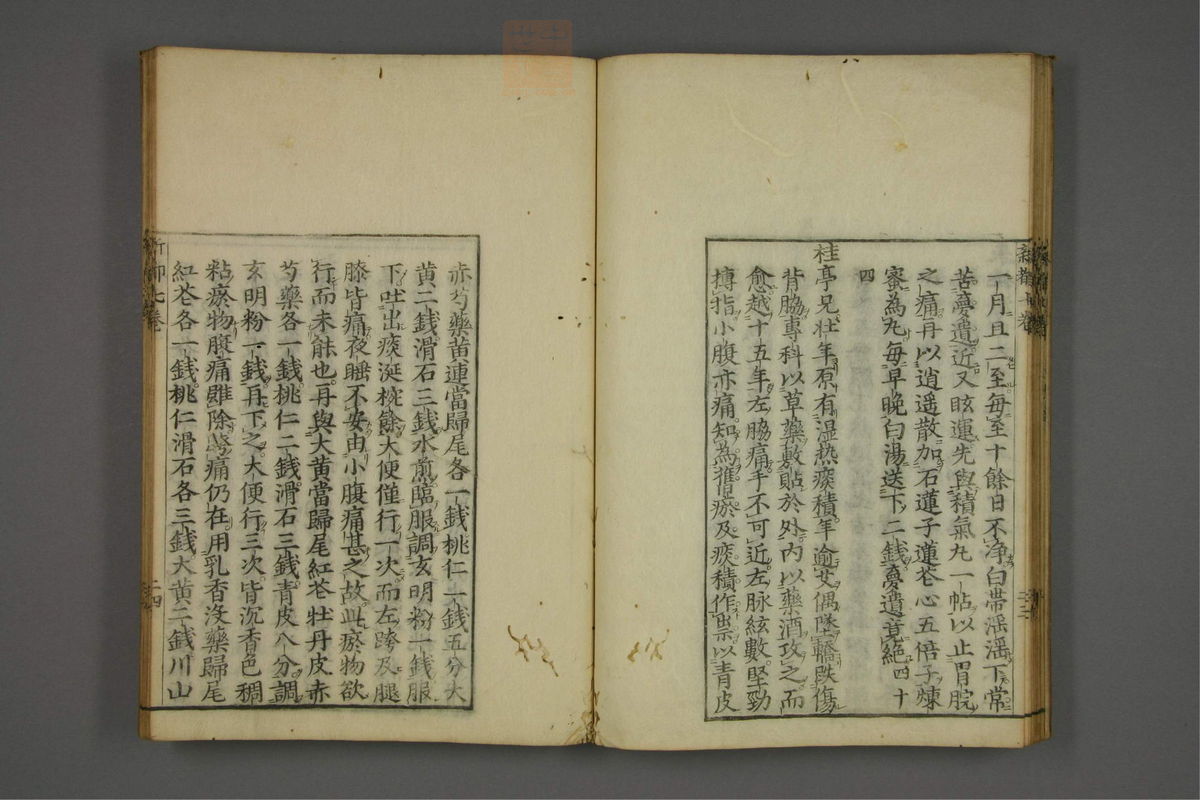 一月且二至每至十餘日不淨白帶滛滛下常
苦夢遺近又眩運先與積氣丸一帖以止胃脘
之痛再以逍遥散加石蓮子蓮花心五倍子煉
蜜為丸毎早晚白湯送下二錢夢遺竟絕四十
四
桂亭兄壮年原有湿热痰積年逾艾偶墜轎跌傷
背脇專科以草藥敷貼於外内以藥酒攻之而
愈越十五年左脇痛手不可近左脉絃數堅勁
搏指小腹亦痛知為舊瘀及痰積作祟以青皮
赤芍藥黄連當歸尾各一錢桃仁一錢五分大
黄二錢滑石三錢水煎臨服調玄明粉一錢服
下吐出痰涎椀餘大便僅行一次而左跨及腿
膝皆痛夜睡不安由小腹痛甚之故此瘀物欲
行而未能也再與大黄當歸尾紅花牡丹皮赤
芍藥各一錢桃仁二錢滑石三錢青皮八分調
玄明粉一錢再下之大便行三次皆沉香色稠
粘瘀物腹痛雖除跨痛仍在用乳香没藥歸尾
紅花各一錢桃仁滑石各三錢大黄二錢川山